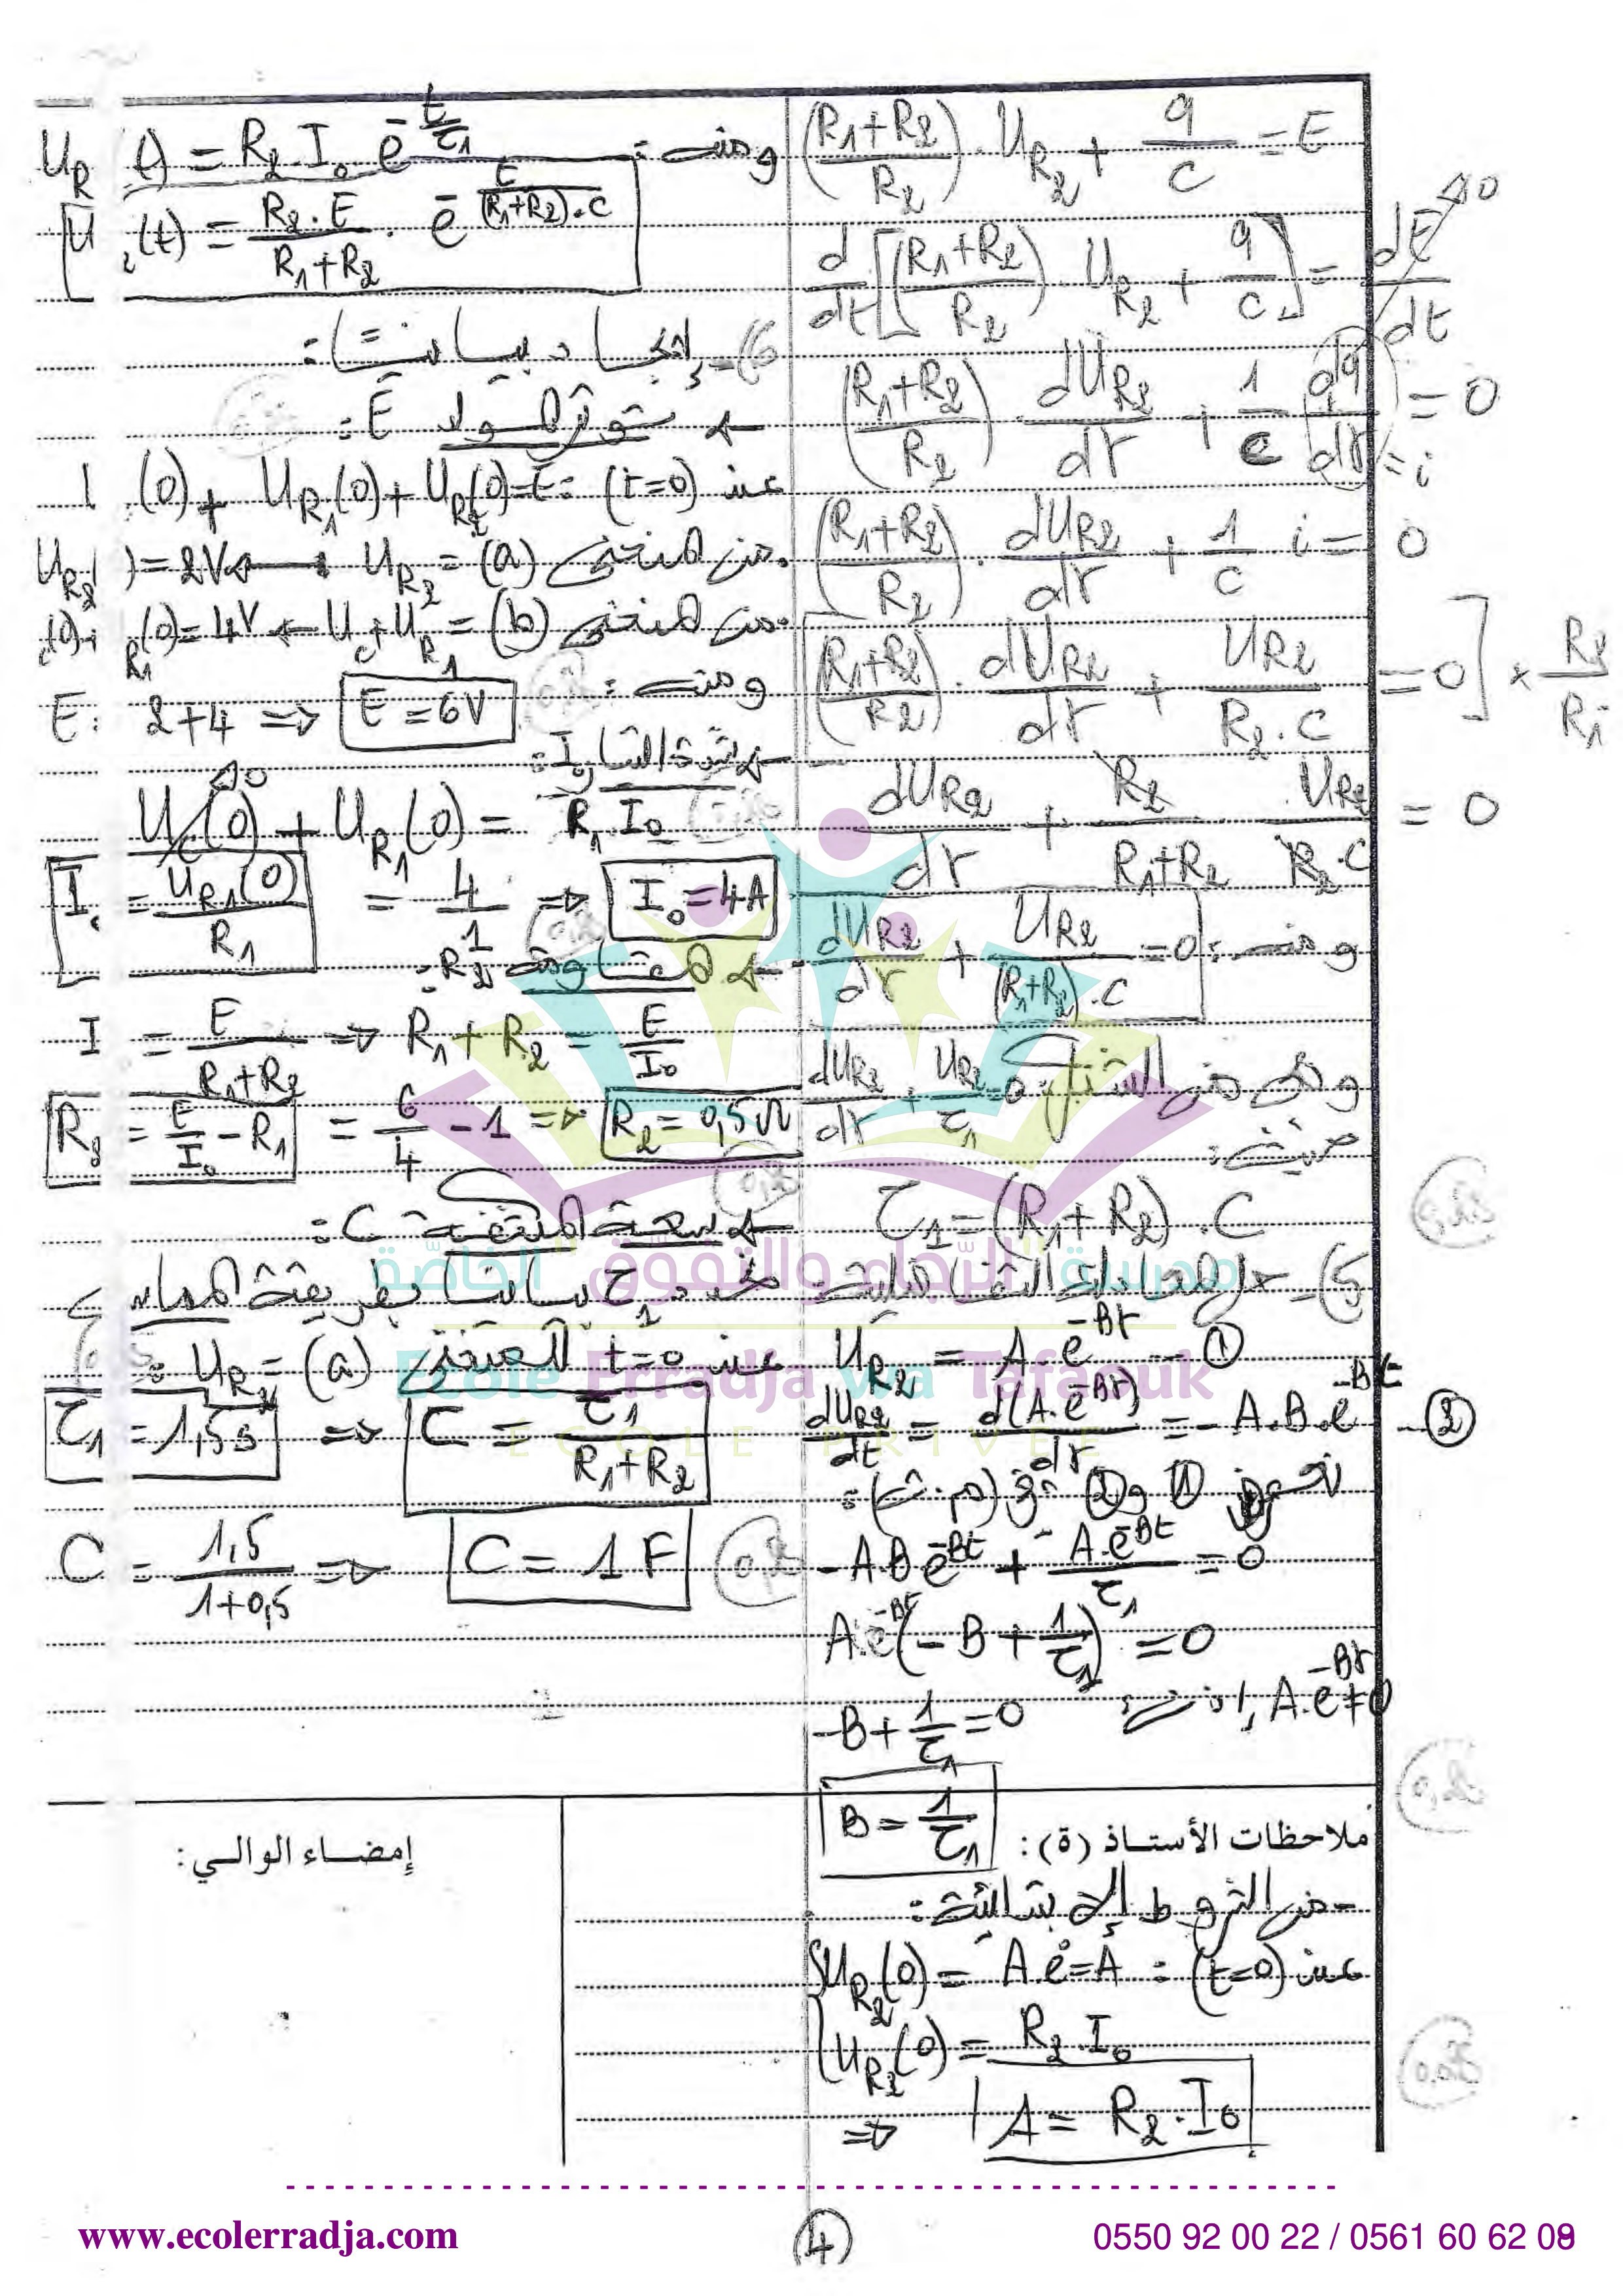 (R₁+R₂/R₂) . U_R₂ + q/C = E
d/dt [(R₁+R₂/R₂) . U_R₂ + q/C] = dE/dt → 0
(R₁+R₂/R₂) . dU_R₂/dt + 1/C dq/dt = 0
= i
(R₁+R₂/R₂) . dU_R₂/dt + 1/C i = 0
(R₁+R₂/R₂) . dU_R₂/dt + U_R₂/R₂.C = 0] ×
dU_R₂/dt + R₂/R₁+R₂ U_R₂/R₂.C = 0
ومنه: dU_R₂/dt + U_R₂/(R₁+R₂).C = 0
وهي من الشكل: dU_R₂/dt + U_R₂/τ₁ = 0
حيث:
τ₁ = (R₁+R₂).C
5)
U_R₂ = A.e^-Bt - ①
dU_R₂/dt = d(A.e^-Bt)/dt = -A.B.e^-Bt - ②
نعوض ① و ② في (م.ت):
-A.B e^-Bt + A.e^-Bt/τ₁ = 0
A.e^-Bt(-B + 1/τ₁) = 0
-B + 1/τ₁ = 0 A.e^-Bt ≠ 0
B = 1/τ₁
ملاحظات الأستاذ (ة):
-من الشروط الإبتدائية:
عند (t=0) : U_R₂(0) = A.e⁰ = A
U_R₂(0) = R₂.I₀
⇒ A = R₂.I₀
U_R (t) = R₂.I₀ e^-t/τ₁
ومنه:
U ₂(t) = R₂.E/R₁+R₂ . e^-t/(R₁+R₂).C
6)- إيجاد بيانيا:
توتر المولد E:
عند (t=0): (0) + U_R₁(0) + U_R₂(0) = E
من المنحنى (a) = U_R₂ → U_R₂ ) = 2V
من المنحنى (b) = U_C + U_R₁ ← (0) = 4V
ومنه: E = 2+4 ⇒ E = 6V
شدة التيار I₀:
U_C(0) → 0 + U_R₁(0) = R₁.I₀
I₀ = U_R₁(0)/R₁ = 4/1 ⇒ I₀ = 4A
المقاومة R₂:
I = E/R₁+R₂ ⇒ R₁+R₂ = E/I₀
R₂ = E/I₀ - R₁ = 6/4 - 1 ⇒ R₂ = 0,5Ω
سعة المكثفة C:
نحدد τ₁ بيانيا بطريقة المماس
عند t=0 للمنحنى (a) = U_R₂ :
τ₁ = 1,5s ⇒ C = τ₁/R₁+R₂
C = 1,5/1+0,5 ⇒ C = 1F
إمضاء الوالي:
مدرسة "الرّجاء والتفوّق" الخاصّة
Ecole Erradja wa Tafaouk
ECOLE PRIVÉE
www.ecolerradja.com
4
0550 92 00 22 / 0561 60 62 09